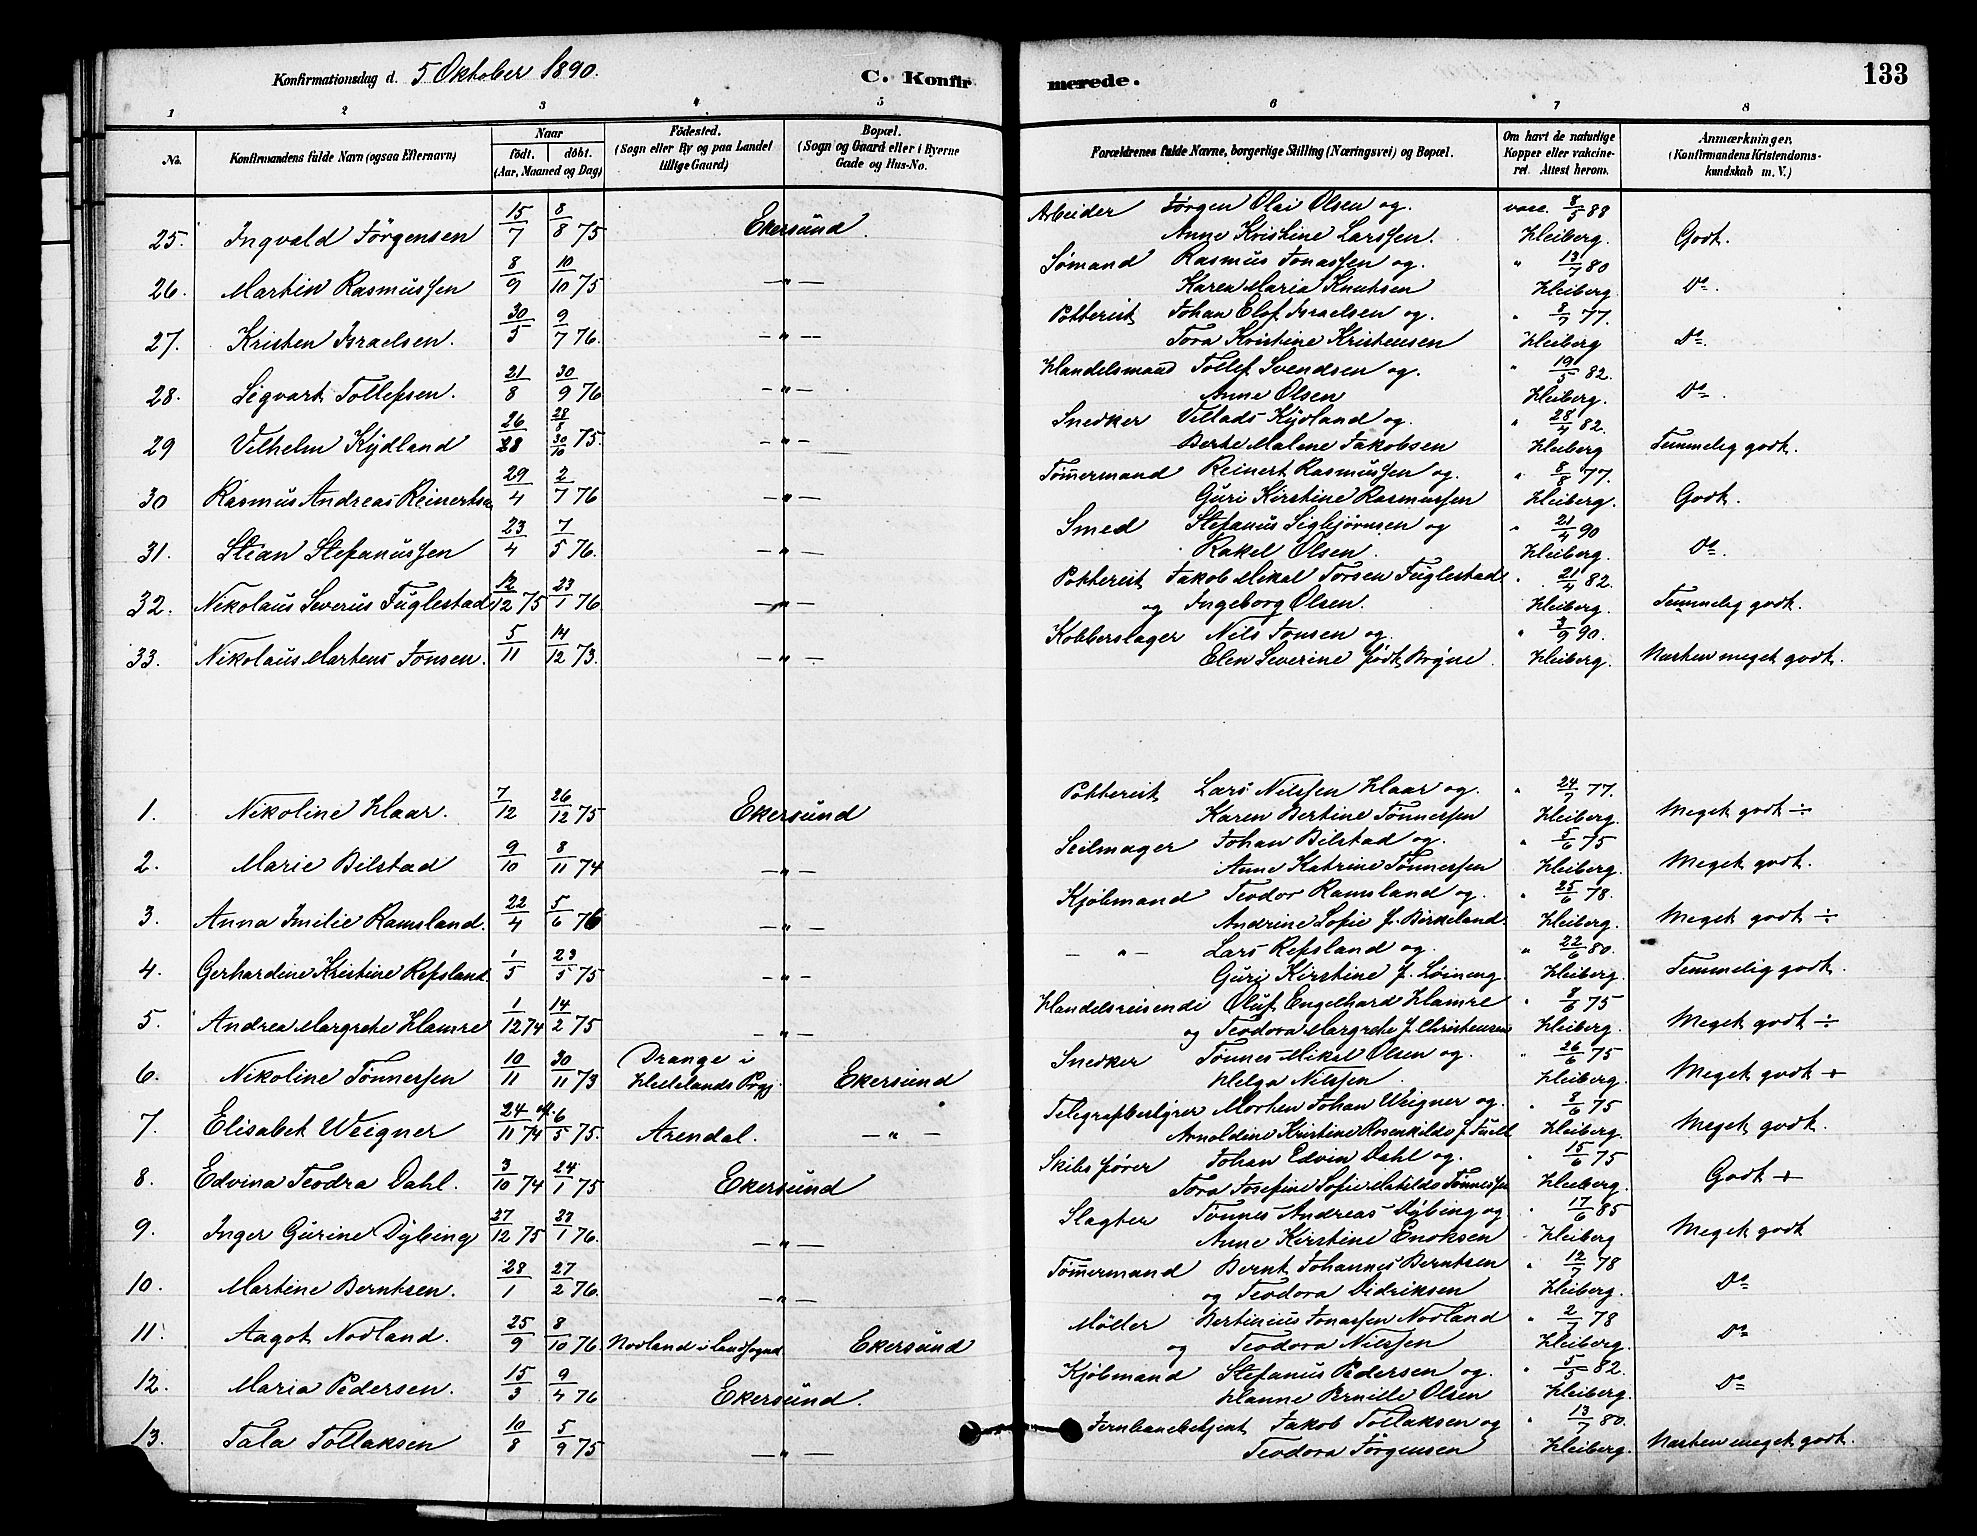 Konfirmationsdag d. 5 Oktober 1890.
C. Konfirmerede.
133
1 2 3 4 5 6 7 8
No.
Konfirmandens fulde Navn (ogsaa Efternavn)
Naar
födt. döbt.
(Aar, Maaned og Dag)
Födested.
(Sogn eller By og paa Landet tillige Gaard)
Bopæl.
(Sogn og Gaard eller i Byerne Gade og Hus-No.
Forældrenes fulde Navne, borgerlige Stilling (Næringsvei) og Bopæl.
Om havt de naturlige Kopper eller vakcineret. Attest herom.
Anmærkninger,
(Konfirmandens Kristendomskundskab m. V.)
25. Ingvald Jørgensen 15/7 8/8 75 Ekersund Arbeider Jørgen Olai Olsen og vacc. 8/5 88
Anne Kristine Larssen. Kleiberg. Godt.
26. Martin Rasmussen 8/9 10/10 75 —"— Sømand Rasmus Jonassen og " 13/7 80
Karen Maria Knutsen Kleiberg Do.
27. Kristen Israelsen. 30/5 9/7 76. —"— Potterist Johan Elof Israelsen og " 8/7 77.
Tora Kristine Kristensen Kleiberg Do.
28. Sigvart Tollefsen. 21/8 30/9 76 —"— Handelsmand Tollef Svendsen og " 19/5 82.
Anne Olsen Kleiberg. Do.
29 Vilhelm Kydland 26/28 28/8 30/10 75. —"— Snedker Villads Kydland og " 28/4 82.
Berte Malene Jakobsen Kleiberg Temmelig godt.
30 Rasmus Andreas Reinertsen 29/4 2/7 76 —"— Tømmermand Reinert Rasmussen og " 8/8 77.
Guri Kirstine Rasmussen Kleiberg. Godt.
31. Stian Stefanussen 23/4 7/5 76. —"— Smed Stefanus Sigbjørnsen og " 21/4 90
Rakel Olsen. Kleiberg. Do.
32. Nikolaus Severus Fuglestad 12/12 75 23/1 76 —"— Potterist Jakob Mikal Torsen Fuglestad " 21/4 82.
og Ingeborg Olsen. Kleiberg. Temmelig godt.
33. Nikolaus Martens Jonsen. 5/11 14/12 73. —"— Kobberslager Nils Jonsen og " 3/9 90.
Elen Severine født Bryne. Kleiberg. Næsten meget godt.
1. Nikoline Haar. 7/12 26/12 75 Ekersund Potterist Lars Nilssen Haar og " 24/7 77.
Karen Bertine Tønnessen Kleiberg. Meget godt ÷
2. Marie Bilstad 9/10 8/11 74 —"— Seilmager Johan Bilstad og " 5/6 75
Anne Katrine Tønnessen Kleiberg. Meget godt.
3. Anna Emilie Ramsland. 22/4 5/6 76 —"— Kjøbmand Teodor Ramsland og " 25/6 78.
Andrine Sofie f. Birkeland. Kleiberg. Meget godt ÷
4. Gerhardine Kristine Refsland 1/5 23/5 75 —"— —"— Lars Refsland og " 22/6 80.
Guri Kirstine f. Løining Kleiberg. Temmelig godt.
5. Andrea Margrete Hamre 1/12 74 14/2 75 —"— Handelsreisende Oluf Engelhard Hamre " 8/6 75
og Teodora Margrete f. Christensen Kleiberg. Meget godt ÷
6. Nikoline Tønnessen 10/11 30/11 73 Drange i Hetlelands Prgj. Ekersund Snedker Tønnes Mikal Olsen og " 26/6 75
Helga Nilssen Kleiberg. Meget godt +
7. Elisabet Weigner 24/11 74 6/5 75. Arendal. —"— Telegrafbestyrer Morten Johan Weigner og " 8/6 75
Arnoldine Kristine Rosenkilde f. Kleiberg. Meget godt.
8. Edvina Teodra Dahl. 3/10 74 24/1 75 Ekersund Skibsfører Johan Edvin Dahl og " 15/6 75
Tora Josefine Sofie Matilde Tønnessen Kleiberg. Godt +
9. Inger Gurine Dybing 27/12 75 23/1 76. —"— Slagter Tønnes Andreas Dybing og " 17/6 85
Anne Kirstine Enoksen Kleiberg Meget godt
10. Martine Berntsen. 28/1 27/2 76. —"— Tømmermand Bernt Johannes Berntsen " 12/7 78
og Teodora Didriksen Kleiberg. Do
11. Aagot Nodland. 25/9 8/10 76 Nodland i Landsognet Ekersund Møller Bertinius Jonassen Nodland " 2/7 78
og Teodora Nilssen Kleiberg. Do
12. Maria Pedersen. 15/3 9/4 76 Ekersund. Kjøbmand Stefanus Pedersen og " 5/5 82.
Hanne Pernille Olsen Kleiberg. Do
13. Tala Tollaksen 10/8 5/9 75 —"— Jernbanebetjent Jakob Tollaksen og " 13/7 80.
Teodora Jørgensen Kleiberg. Næsten meget godt.